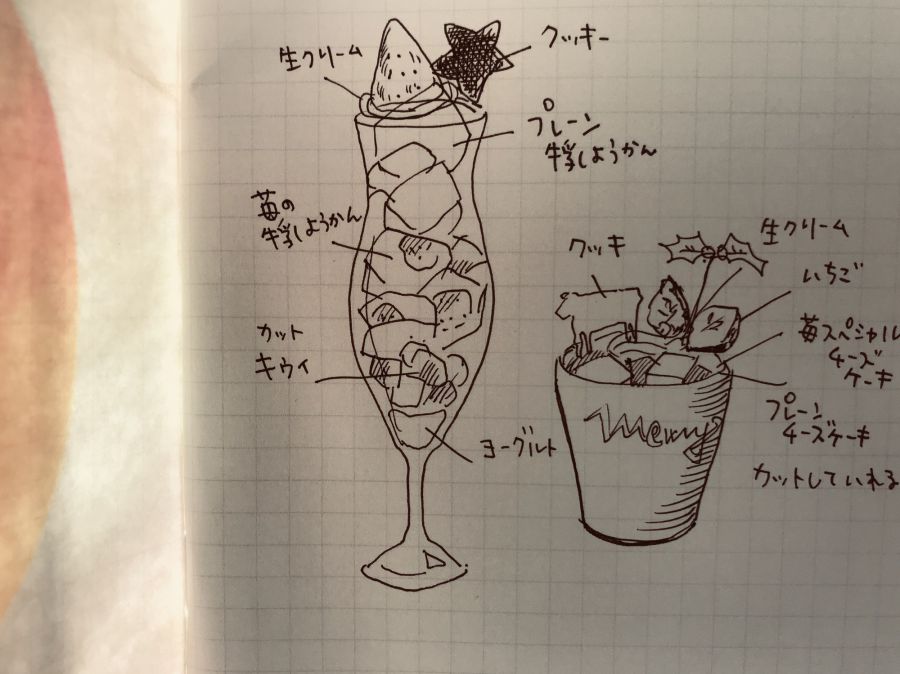 生クリーム
クッキー
プレーン
牛乳ようかん
苺の
牛乳ようかん
カット
キウイ
ヨーグルト
クッキ
生クリーム
いちご
苺スペシャル
チーズ
ケーキ
プレーン
チーズケーキ
カットしていれる
Merry